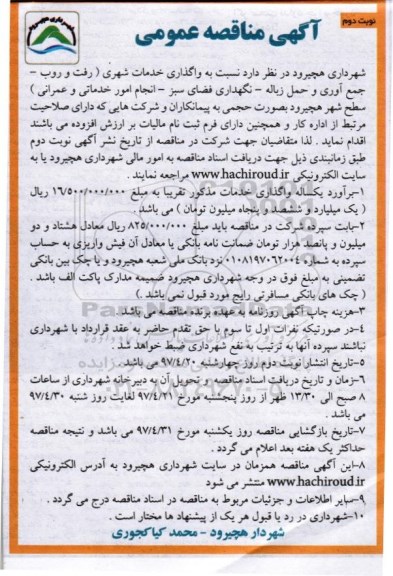 نوبت دوم
آگهی مناقصه عمومی
شهرداری هچیرود در نظر دارد نسبت به واگذاری خدمات شهری ( رفت و روب -
جمع آوری و حمل زباله - نگهداری فضای سبز - انجام امور خدماتی و عمرانی )
سطح شهر هچیرود بصورت حجمی به پیمانکاران و شرکت هایی که دارای صلاحیت
مرتبط از اداره کار و همچنین دارای فرم ثبت نام مالیات بر ارزش افزوده می باشند
اقدام نماید . لذا متقاضیان جهت شرکت در مناقصه از تاریخ نشر آگهی نوبت دوم
طبق زمانبندی ذیل جهت دریافت اسناد مناقصه به امور مالی شهرداری هچیرود یا به
سایت الکترونیکی www.hachiroud.ir مراجعه نمایند .
۱-برآورد یکساله واگذاری خدمات مذکور تقریبا به مبلغ ۱۶/۵۰۰/۰۰۰/۰۰۰ ریال
( یک میلیارد و ششصد و پنجاه میلیون تومان ) می باشد .
۲-بابت سپرده شرکت در مناقصه باید مبلغ ۸۲۵/۰۰۰/۰۰۰ ریال معادل هشتاد و دو
میلیون و پانصد هزار تومان ضمانت نامه بانکی یا معادل آن فیش واریزی به حساب
سپرده به شماره ۰۱۰۸۱۹۷۰۶۲۰۰۴ نزد بانک ملی شعبه هچیرود و یا چک بین بانکی
تضمینی به مبلغ فوق در وجه شهرداری هچیرود ضمیمه مدارک پاکت الف باشد .
( چک های بانکی مسافرتی رایج مورد قبول نمی باشد )
۳-هزینه چاپ آگهی روزنامه به عهده برنده مناقصه می باشد .
۴-در صورتیکه نفرات اول تا سوم با حق تقدم حاضر به عقد قرارداد با شهرداری
نباشند سپرده آنها به ترتیب به نفع شهرداری ضبط خواهد شد .
۵-تاریخ انتشار نوبت دوم روز چهارشنبه ۹۷/۴/۲۰ می باشد .
۶-زمان و تاریخ دریافت اسناد مناقصه و تحویل آن به دبیرخانه شهرداری از ساعات
۸ صبح الی ۱۳/۳۰ ظهر از روز پنجشنبه مورخ ۹۷/۴/۲۱ لغایت روز شنبه ۹۷/۴/۳۰
می باشد .
۷-تاریخ بازگشایی مناقصه روز یکشنبه مورخ ۹۷/۴/۳۱ می باشد و نتیجه مناقصه
حداکثر یک هفته بعد اعلام می گردد .
۸-این آگهی مناقصه همزمان در سایت شهرداری هچیرود به آدرس الکترونیکی
www.hachiroud.ir منتشر می شود
۹-سایر اطلاعات و جزئیات مربوط به مناقصه در اسناد مناقصه درج می گردد .
۱۰-شهرداری در رد یا قبول هر یک از پیشنهاد ها مختار است .
شهردار هچیرود - محمد کیاکجوری